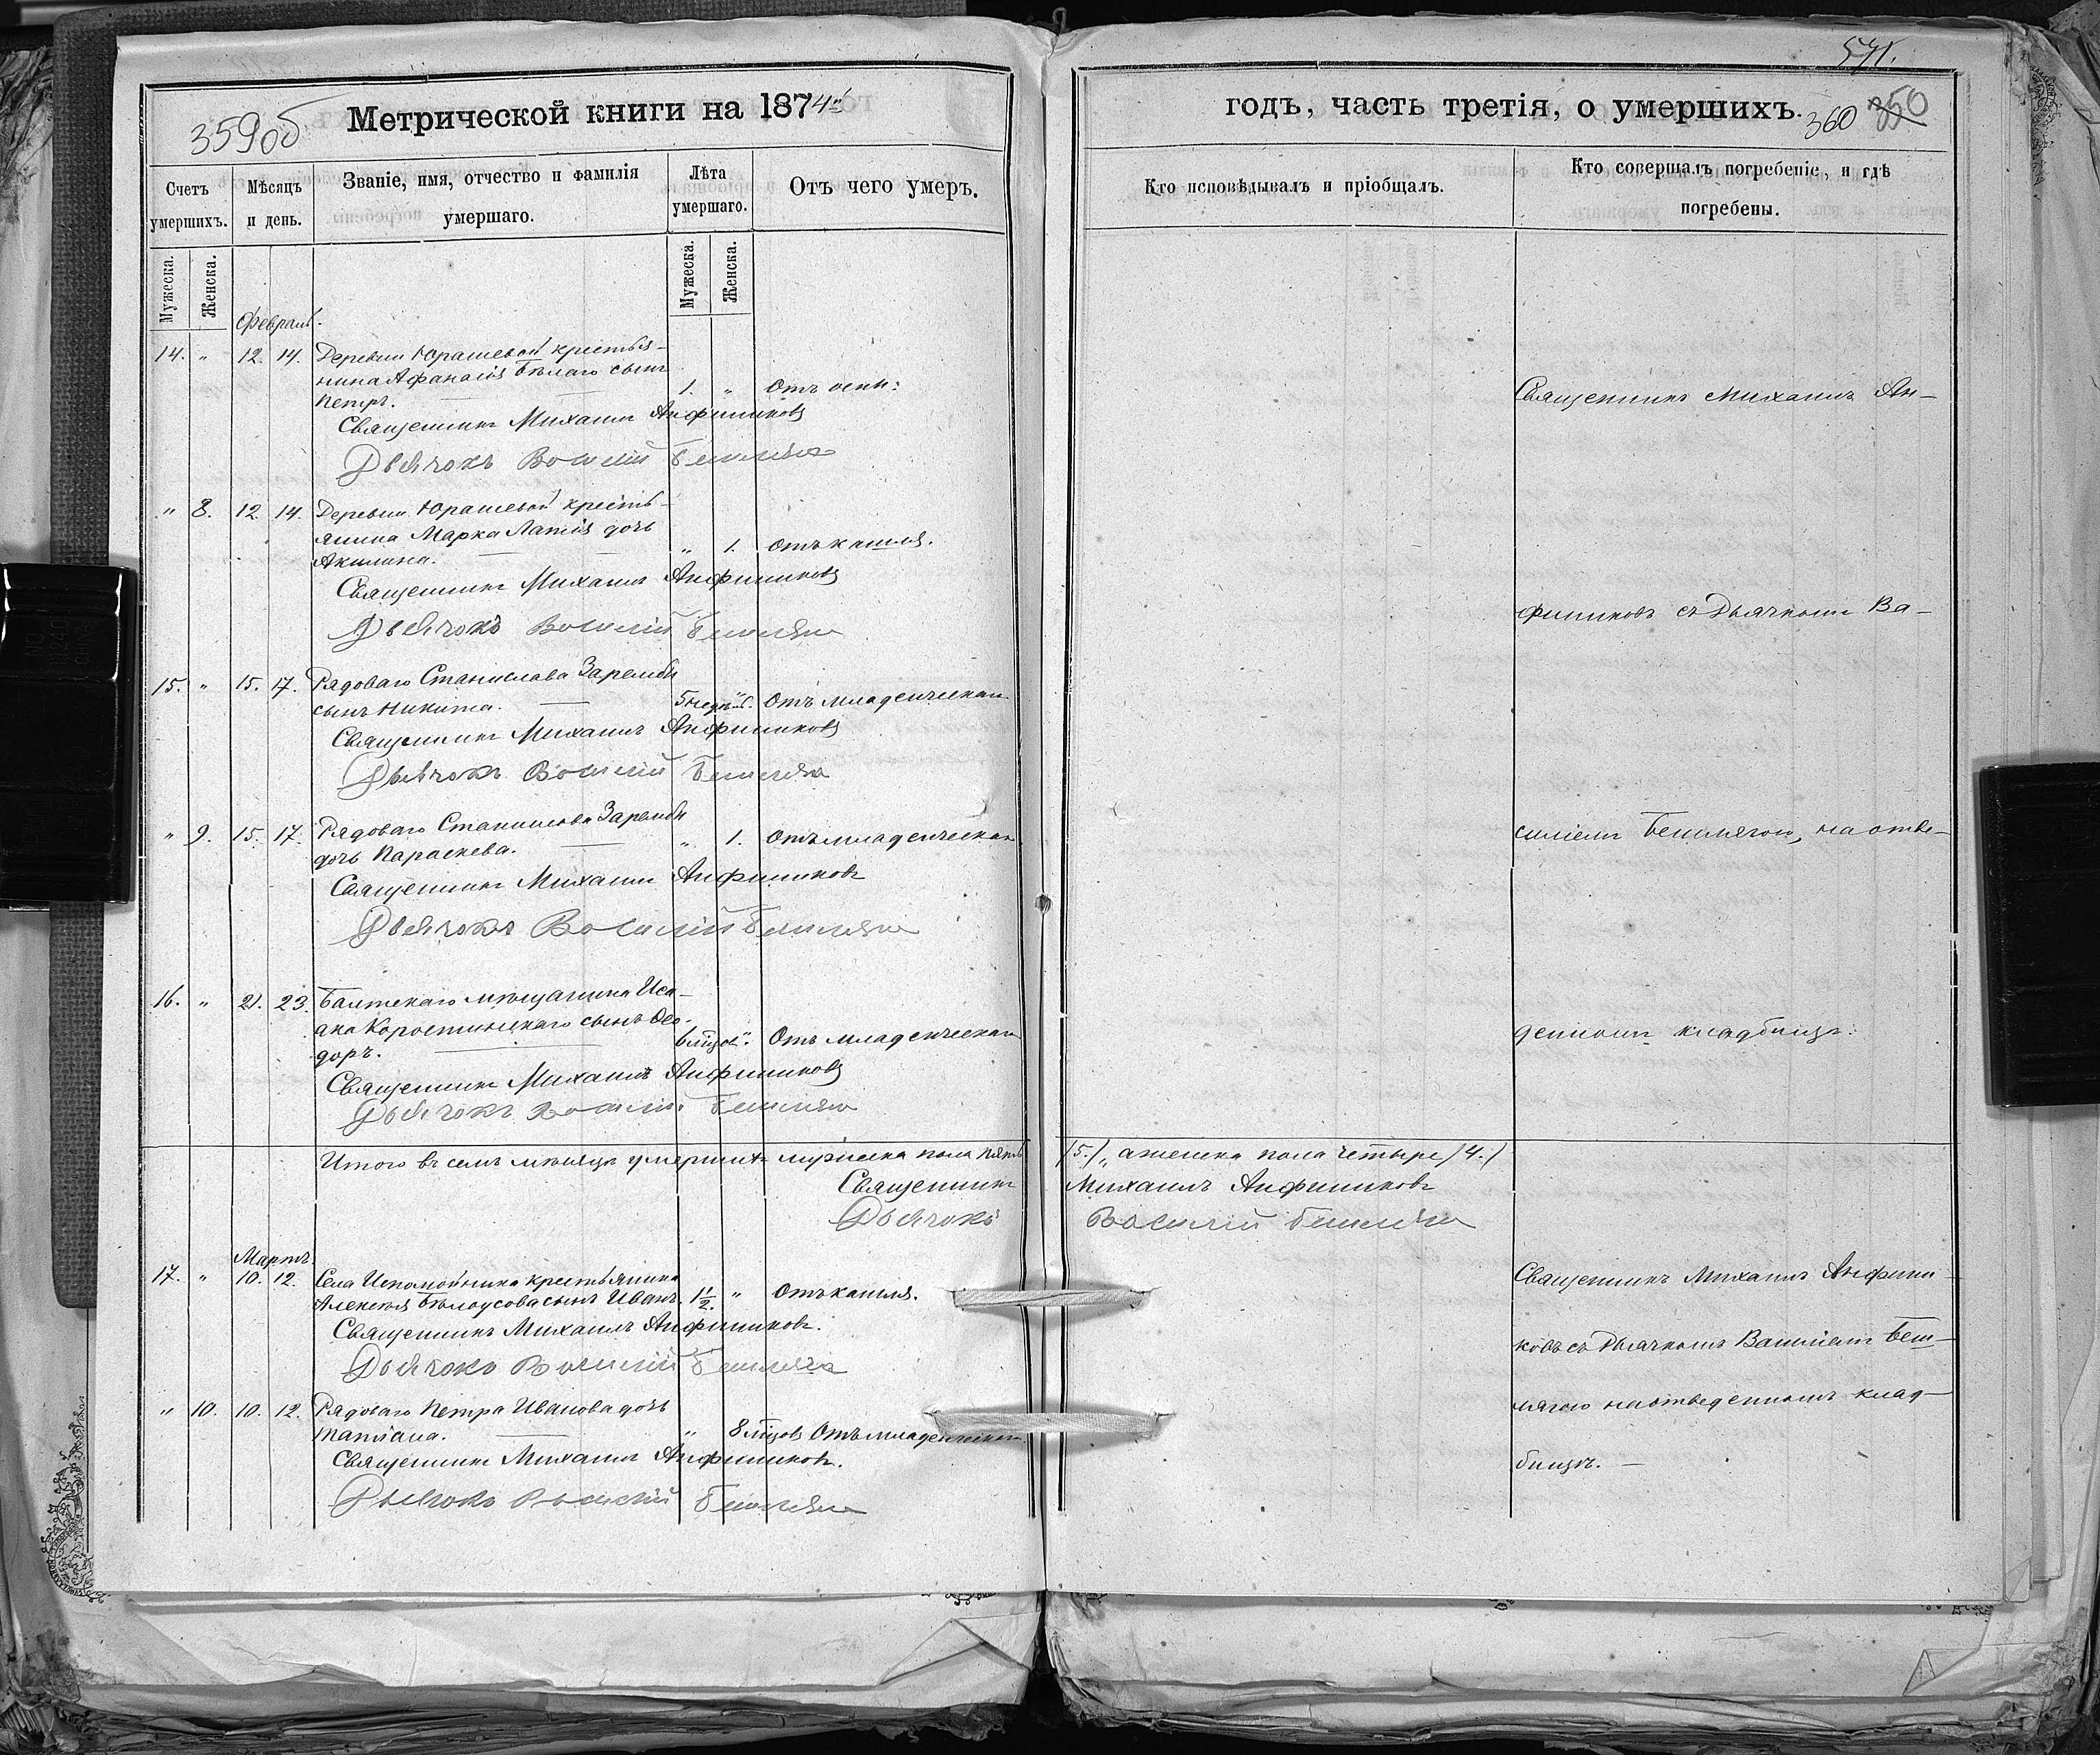 359об
Метрической книги на 1874й
Счетъ умершихъ.
Мѣсяцъ и день.
Званіе, имя, отчество и фамилія умершаго.
Лѣта умершаго.
Отъ чего умеръ.
Мужеска.
Женска.
Мужеска.
Женска.
Февраль.
14. " 12. 14. Деревни Юрашевой крестья-
нина Афанасія Бѣлаго сынъ
Петръ. 1. " Отъ оспы.
Священникъ Михаилъ Анфиниковъ
Дьячокъ Василій
" 8. 12. 14. Деревни Юрашевой кресть-
янина Марка Лапія дочь
Акилина. " 1. Отъ кашля.
Священникъ Михаилъ Анфиниковъ
Дьячокъ Василій
15. " 15. 17. Рядоваго Станислава Зарембы
сынъ Никита. " Отъ младенческая
Священникъ Михаилъ Анфиниковъ
Дьячокъ Василій
" 9. 15. 17. Рядоваго Станислава Зарембы
дочь Параскева. " 1. Отъ младенческая
Священникъ Михаилъ Анфиниковъ
Дьячокъ Василій
16. " 21. 23. Балтскаго мѣщанина Иса-
ака Коростинскаго сынъ Ѳео-
доръ. " Отъ младенческая
Священникъ Михаилъ Анфиниковъ
Дьячокъ Василій
Итого въ семъ мѣсяцѣ умершихъ мужеска пола пять
Священникъ
Дьячокъ
Мартъ.
17. " 10. 12. Села крестьянина
Алексѣя Бѣлоусова сынъ Иванъ. 1 1/2. " Отъ кашля.
Священникъ Михаилъ Анфиниковъ.
Дьячокъ Василій
" 10. 10. 12. Рядоваго Петра Иванова дочь
Татіана. " 8 Отъ младенческая
Священникъ Михаилъ Анфиниковъ.
Дьячокъ Василій
571.
годъ, часть третія, о умершихъ.
360 350
Кто исповѣдывалъ и пріобщалъ.
Кто совершалъ погребеніе, и гдѣ
погребены.
Священникъ Михаилъ Ан-
финиковъ съ Дьячкомъ Ва-
силіемъ на отве-
денномъ кладбищѣ.
/5./, а женска пола четыре /4./
Михаилъ Анфиниковъ
Василій
Священникъ Михаилъ Анфини-
ковъ съ Дьячкомъ Василіемъ
на отведенномъ клад-
бищѣ. —